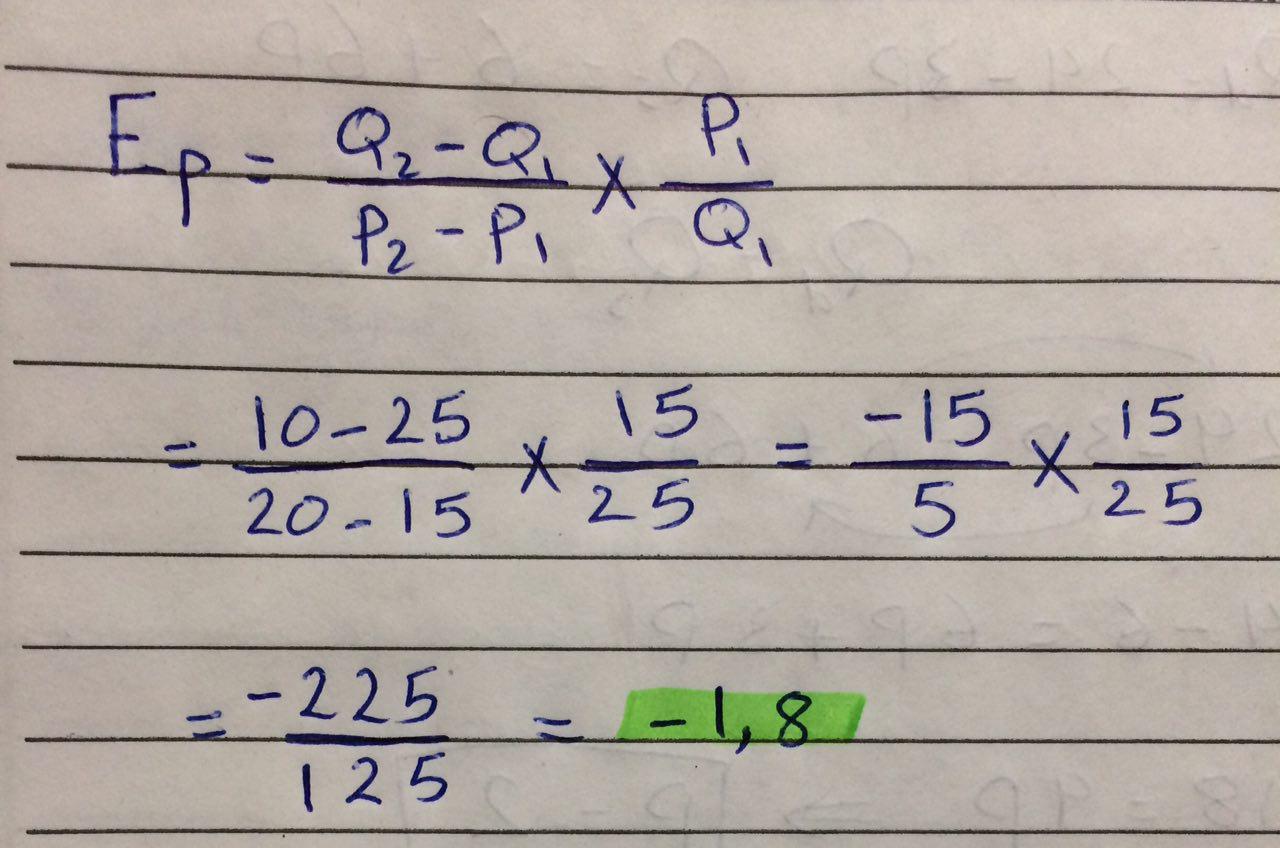 Ep = (Q₂ - Q₁)/(P₂ - P₁) × P₁/Q₁
= (10 - 25)/(20 - 15) × 15/25 = -15/5 × 15/25
= -225/125 = -1,8